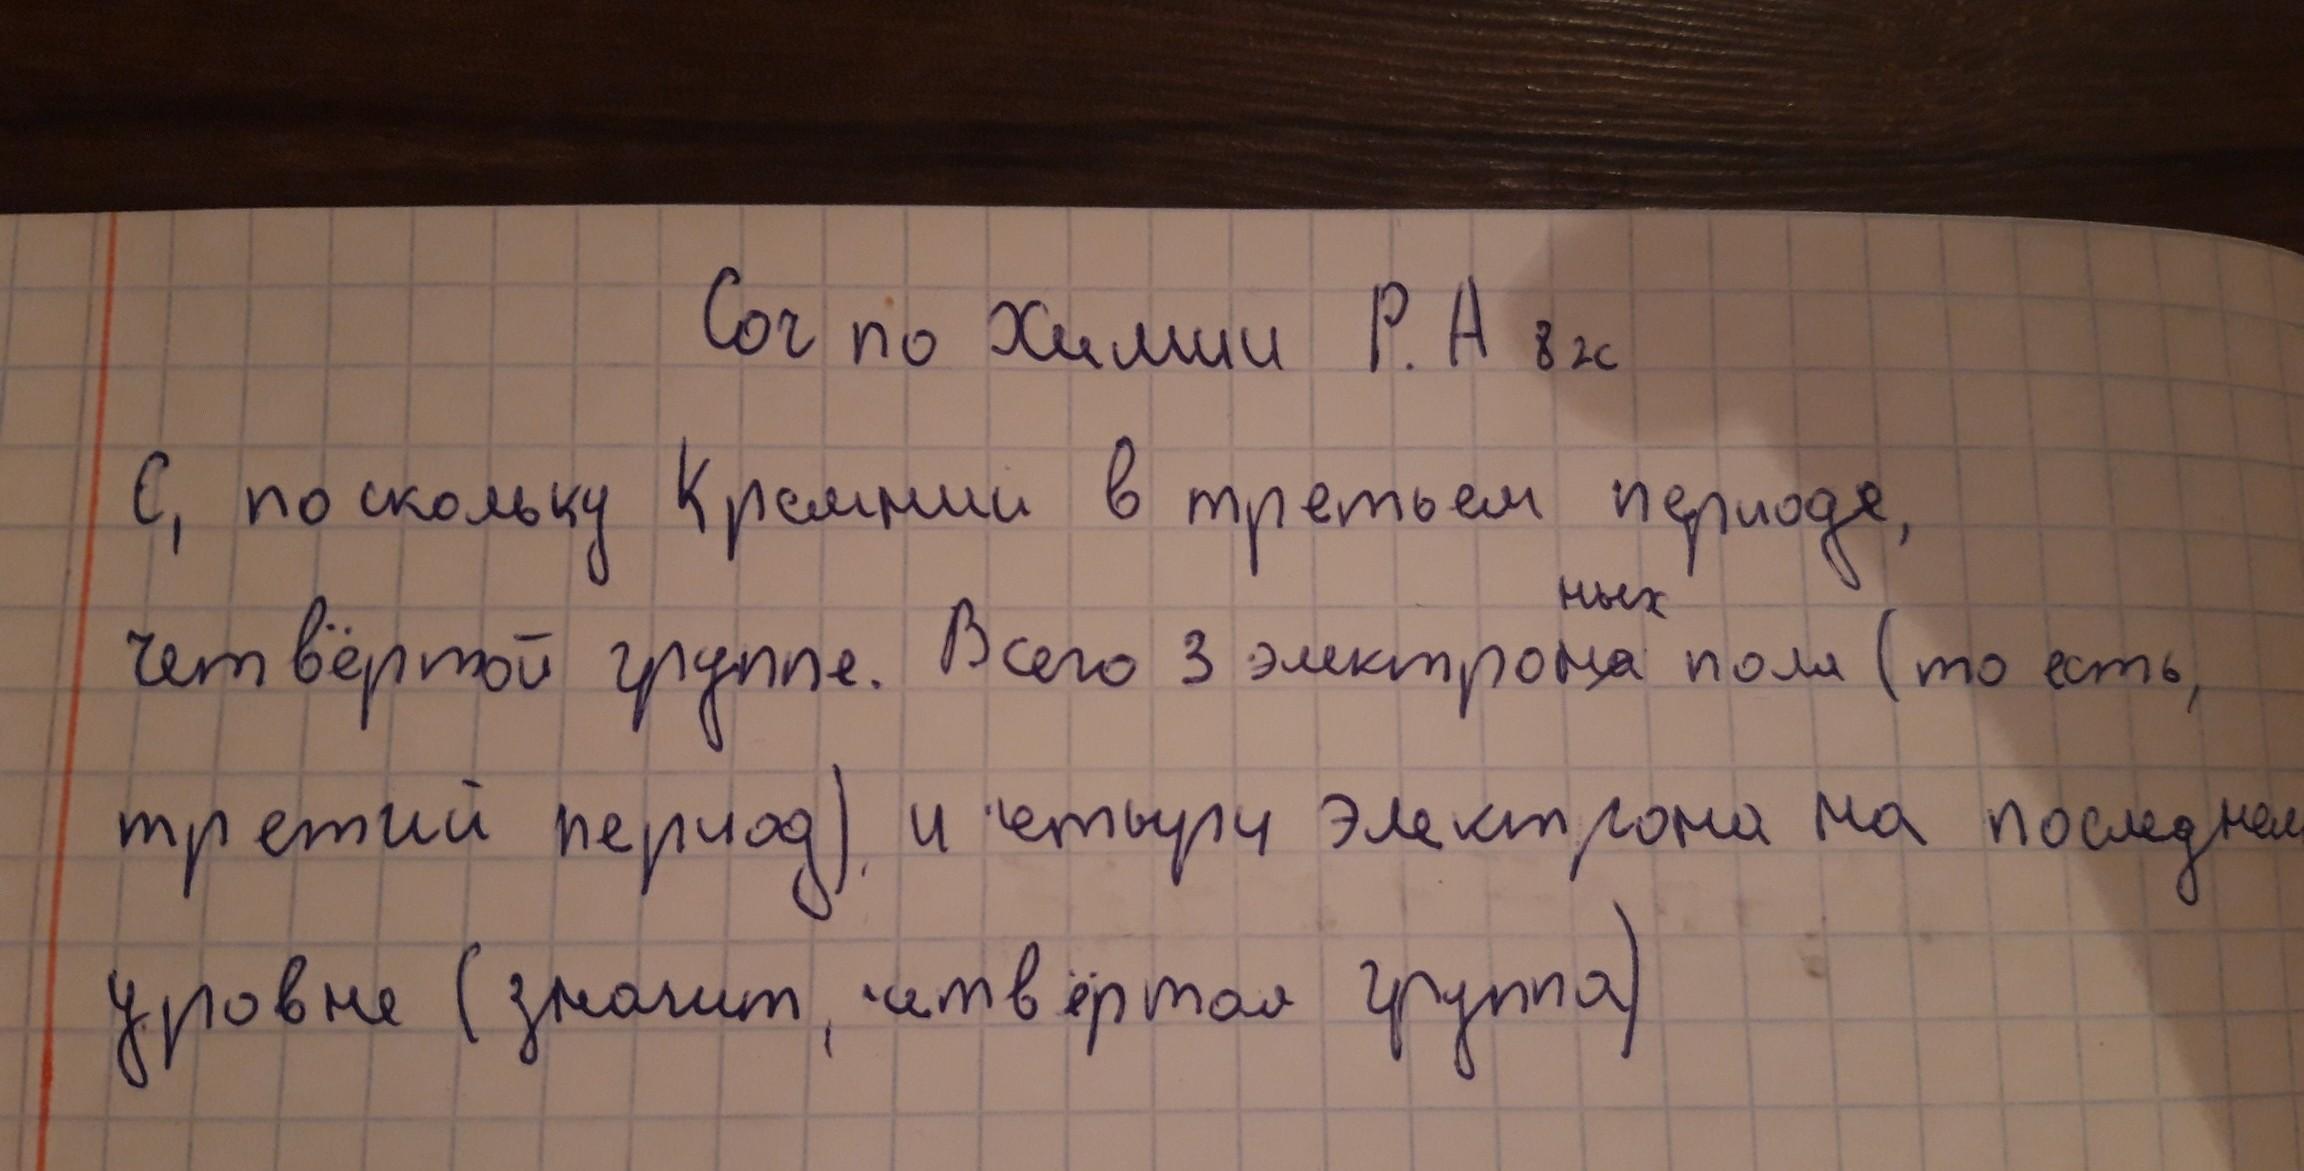 Соч по Химии Р. А 8 ж
С, поскольку Кремнии в третьем периоде,
ных
четвёртой группе. Всего 3 электрона поля (то есть,
третий период), и четыри электрона на последнем
уровне (значит, четвёртая группа)